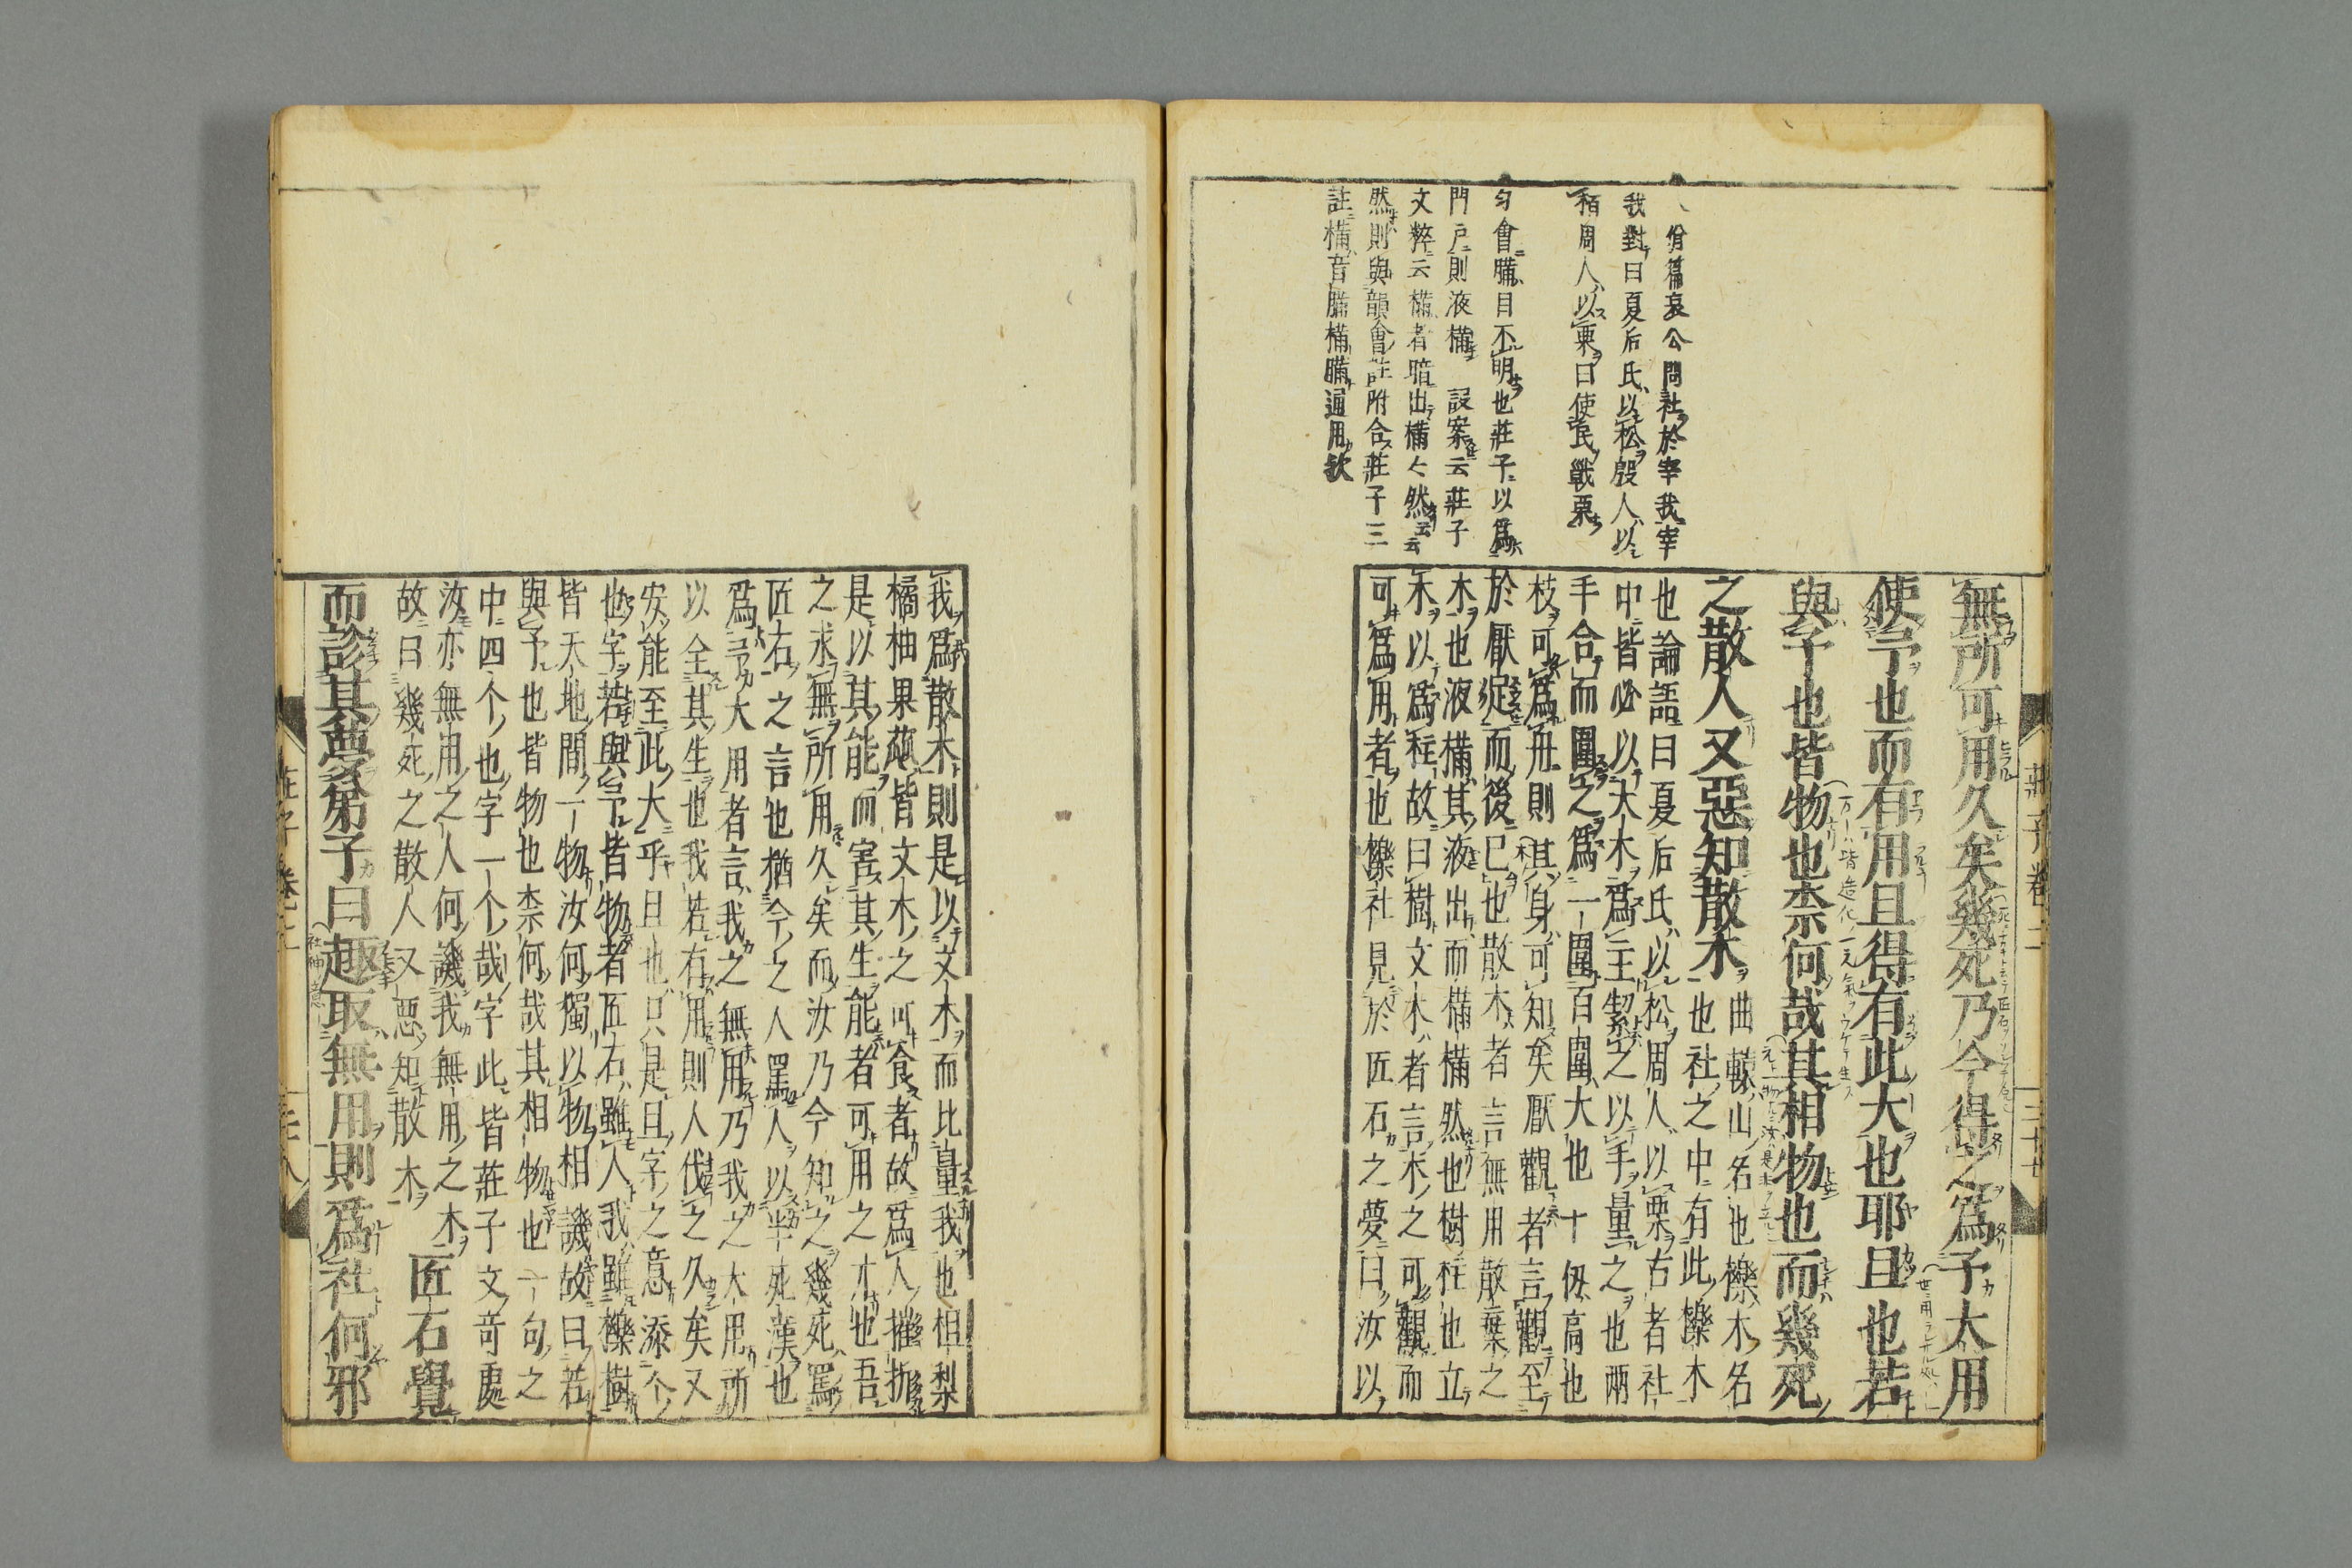 八佾篇哀公問社於宰我宰
我對曰夏后氏以松殷人以
栢周人以栗曰使民戰栗
匀會䐽目不明也莊子以爲
門戸則液樠 設案云莊子
文粹云樠者暗出樠々然云云
然則與韻會註附合莊子三
註樠音䐽樠䐽通用歟
無所可用久矣幾死乃今得之爲予大用
使予也而有用且得有此大也耶且也若
與予也皆物也柰何哉其相物也而幾死
之散人又惡知散木
曲轅山名也櫟木名
也社之中有此櫟木
也論語曰夏后氏以松周人以栗古者社
中皆必以大木爲主絜之以手量之也兩
手合而圍之爲一圍百圍大也十仭高也
枝可爲舟則其身可知矣厭觀者言觀至
於厭綻而後已也散木者言無用散棄之
木也液樠其液出而樠樠然也樹柱也立
木以爲柱故曰樹文木者言木之可觀而
可爲用者也櫟社見於匠石之夢曰汝以
我爲散木則是以文木而比量我也柤梨
橘柚果蓏皆文木之可食者故爲人摧折
是以其能而害其生能者可用之才也吾
之求無所用久矣而汝乃今知之幾死罵
匠石之言也猶今之人罵人以半死漢也
爲予大用者言我之無用乃我之大用所
以全其生也我若有用則人伐之久矣又
安能至此大乎且也只是且字之意添个
也字若與予皆物者匠石雖人我雖櫟樹
皆天地間一物汝何獨以物相譏故曰若
與予也皆物也柰何哉其相物也一句之
中四个也字一个哉字此皆莊子文奇處
汝亦無用之人何譏我無用之木
故曰幾死之散人又惡知散木
匠石覺
而診其夢弟子曰趣取無用則爲社何邪